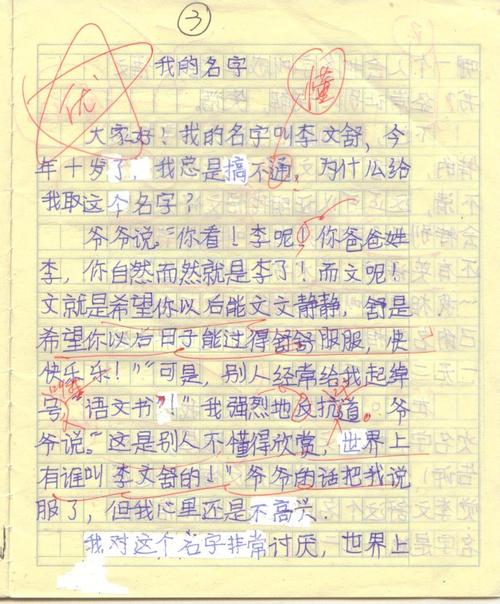 ③
优
我的名字
懂
大家好！我的名字叫李文舒，今
年十岁了，我总是搞不通，为什么给
我取这个名字？
爷爷说：“你看！李呢！你爸爸姓
李，你自然而然就是李了！而文呢！
文就是希望你以后能文文静静，舒是
希望你以后日子能过得舒舒服服，快
快乐乐！”“可是，别人经常给我起绰
号，“语文书”！”我强烈地反抗道。爷
爷说：“这是别人不懂得欣赏，世界上
有谁叫李文舒的！”爷爷的话把我说
服了，但我心里还是不高兴.
我对这个名字非常讨厌，世界上